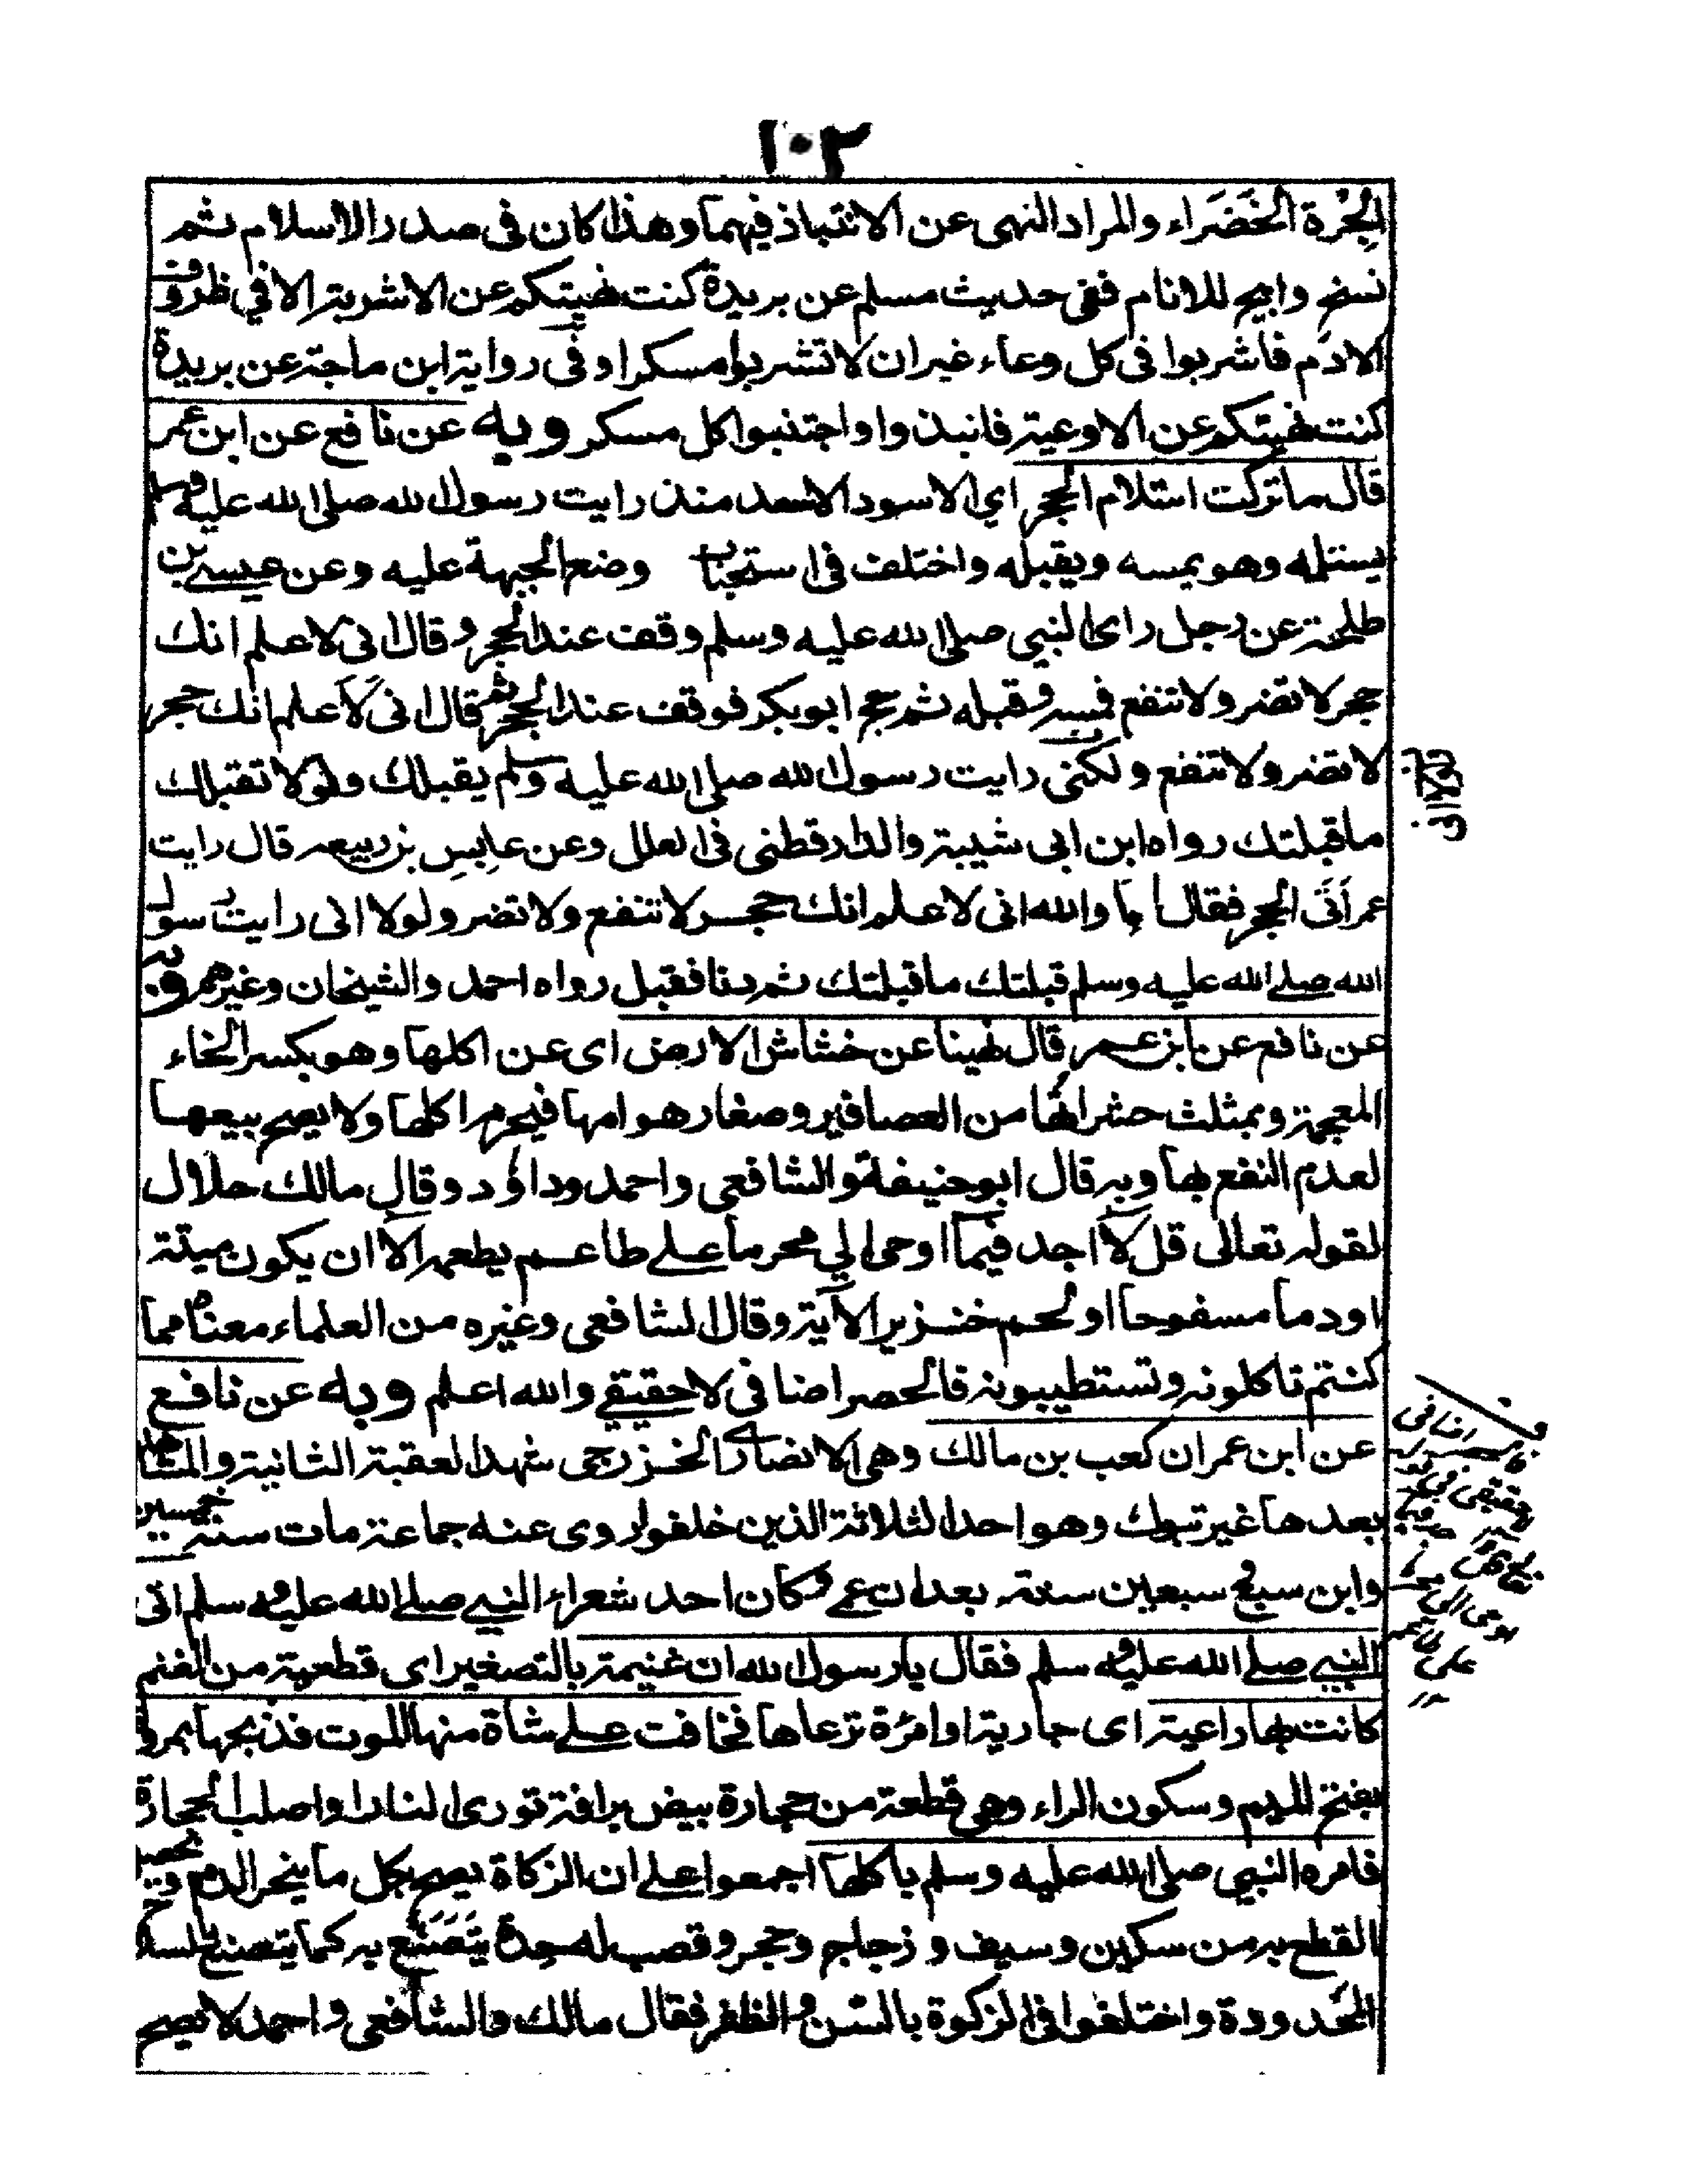 ١٠٢
الجُرة الخَضَراء والمراد النهى عن الانتباذ فيهما وهذا كان فى صدر الاسلام ثم
نسخ وابيح للانام ففى حديث مسلم عن بريدة كنت نهيتكم عن الاشربة الا في ظروف
الادم فاشربوا فى كل وعاء غير ان لا تشربوا مسكرا وفى رواية ابن ماجة عن بريدة
كنت نهيتكم عن الاوعية فانبذوا واجتنبوا كل مسكر وبه عن نافع عن ابن عمر
قال ما تركت استلام الحجر اي الاسود الاسعد منذ رايت رسول الله صلى الله عليه وسلم
يستلمه وهو يمسه ويقبله واختلف فى استحباب وضع الجبهة عليه وعن عيسى بن
طلحة عن رجل راى النبي صلى الله عليه وسلم وقف عند الحجر وقال انى لاعلم انك
حجر لا تضر ولا تنفع فمسه وقبله ثم حج ابوبكر فوقف عند الحجر ثم قال انى لاعلم انك حجر
لا تضر ولا تنفع ولكنى رايت رسول الله صلى الله عليه وسلم يقبلك ولولا تقبلك
ما قبلتك رواه ابن ابى شيبة والدارقطنى فى العلل وعن عابس بن ربيعه قال رايت
عمر أتَى الحجر فقال اما والله انى لا علم انك حجر لا تنفع ولا تضر ولولا انى رايت رسول
الله صلى الله عليه وسلم قبلتك ما قبلتك ثم دنا فقبل رواه احمد والشيخان وغيرهم وبه
عن نافع عن ابن عمر قال نهينا عن خشاش الارض اى عن اكلها وهو بكسر الخاء
المعجمة وبمثلث حشراتها من العصافير وصغار هوامها فيحرم اكلها ولا يصح بيعها
لعدم النفع بها وبه قال ابوحنيفة والشافعى واحمد وداؤد وقال مالك حلال
لقوله تعالى قل لا اجد فيما اوحى الي محرما على طاعم يطعمه الا ان يكون ميتة
اودما مسفوحا او لحم خنزير الآية وقال الشافعى وغيره من العلماء معناه مما
كنتم تاكلونه وتستطيبونه فالحصر اضافى لا حقيقي والله اعلم وبه عن نافع
عن ابن عمر ان كعب بن مالك وهى الانصارى الخزرجى شهد العقبة الثانية والمشاهد
بعدها غير تبوك وهو احد الثلاثة الذين خلفوا روى عنه جماعة مات سنة خمسين
وابن سبع سبعين سنة بعد ان عمي وكان احد شعراء النبي صلى الله عليه وسلم اتى
النبي صلى الله عليه وسلم فقال يا رسول الله ان غنيمة بالتصغير اى قطعية من الغنم
كانت لها راعية اى جارية او امرَّة ترعاها فخافت على شاة منها الموت فذبحها بمروة
بفتح الميم وسكون الراء وهى قطعة من حجارة بيض براقة تورى النار او اصلب الحجارة
فامره النبي صلى الله عليه وسلم باكلها اجمعوا على ان الزكاة يصح بكل ما ينحر الدم ويحصل
القطع به من سكين وسيف و زجاج وحجر وقصب له حدة يَتَصَنَّع به كما يتصنع بالسلاح
المحدودة واختلفوا فى الزكوة بالسن والظفر فقال مالك والشافعى واحمد لا يصح
لولا انى